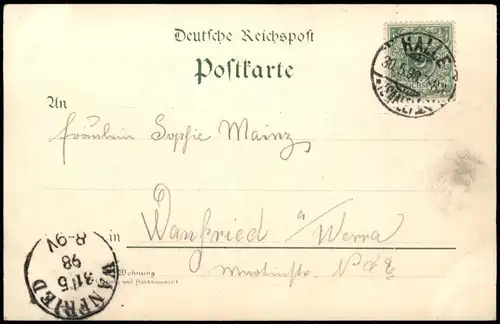 Deutsche Reichspost
Postkarte
HALLE
30.5.98
An
Fräulein Sophie Mainz
in Wanfried a/ Werra
Wohnung
WANFRIED
31/5
98
8-9V